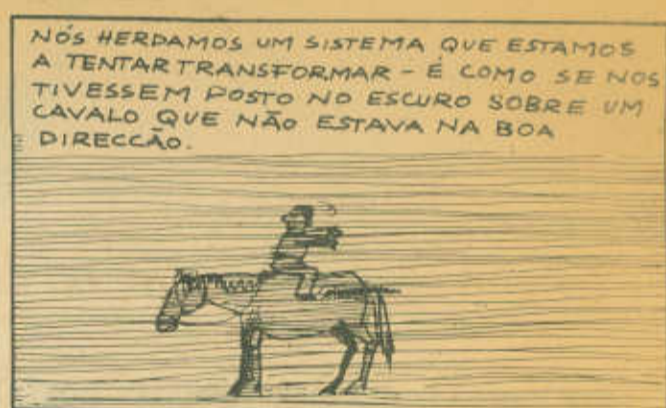 NÓS HERDAMOS UM SISTEMA QUE ESTAMOS
A TENTAR TRANSFORMAR - É COMO SE NOS
TIVESSEM POSTO NO ESCURO SOBRE UM
CAVALO QUE NÃO ESTAVA NA BOA
DIRECCÃO.